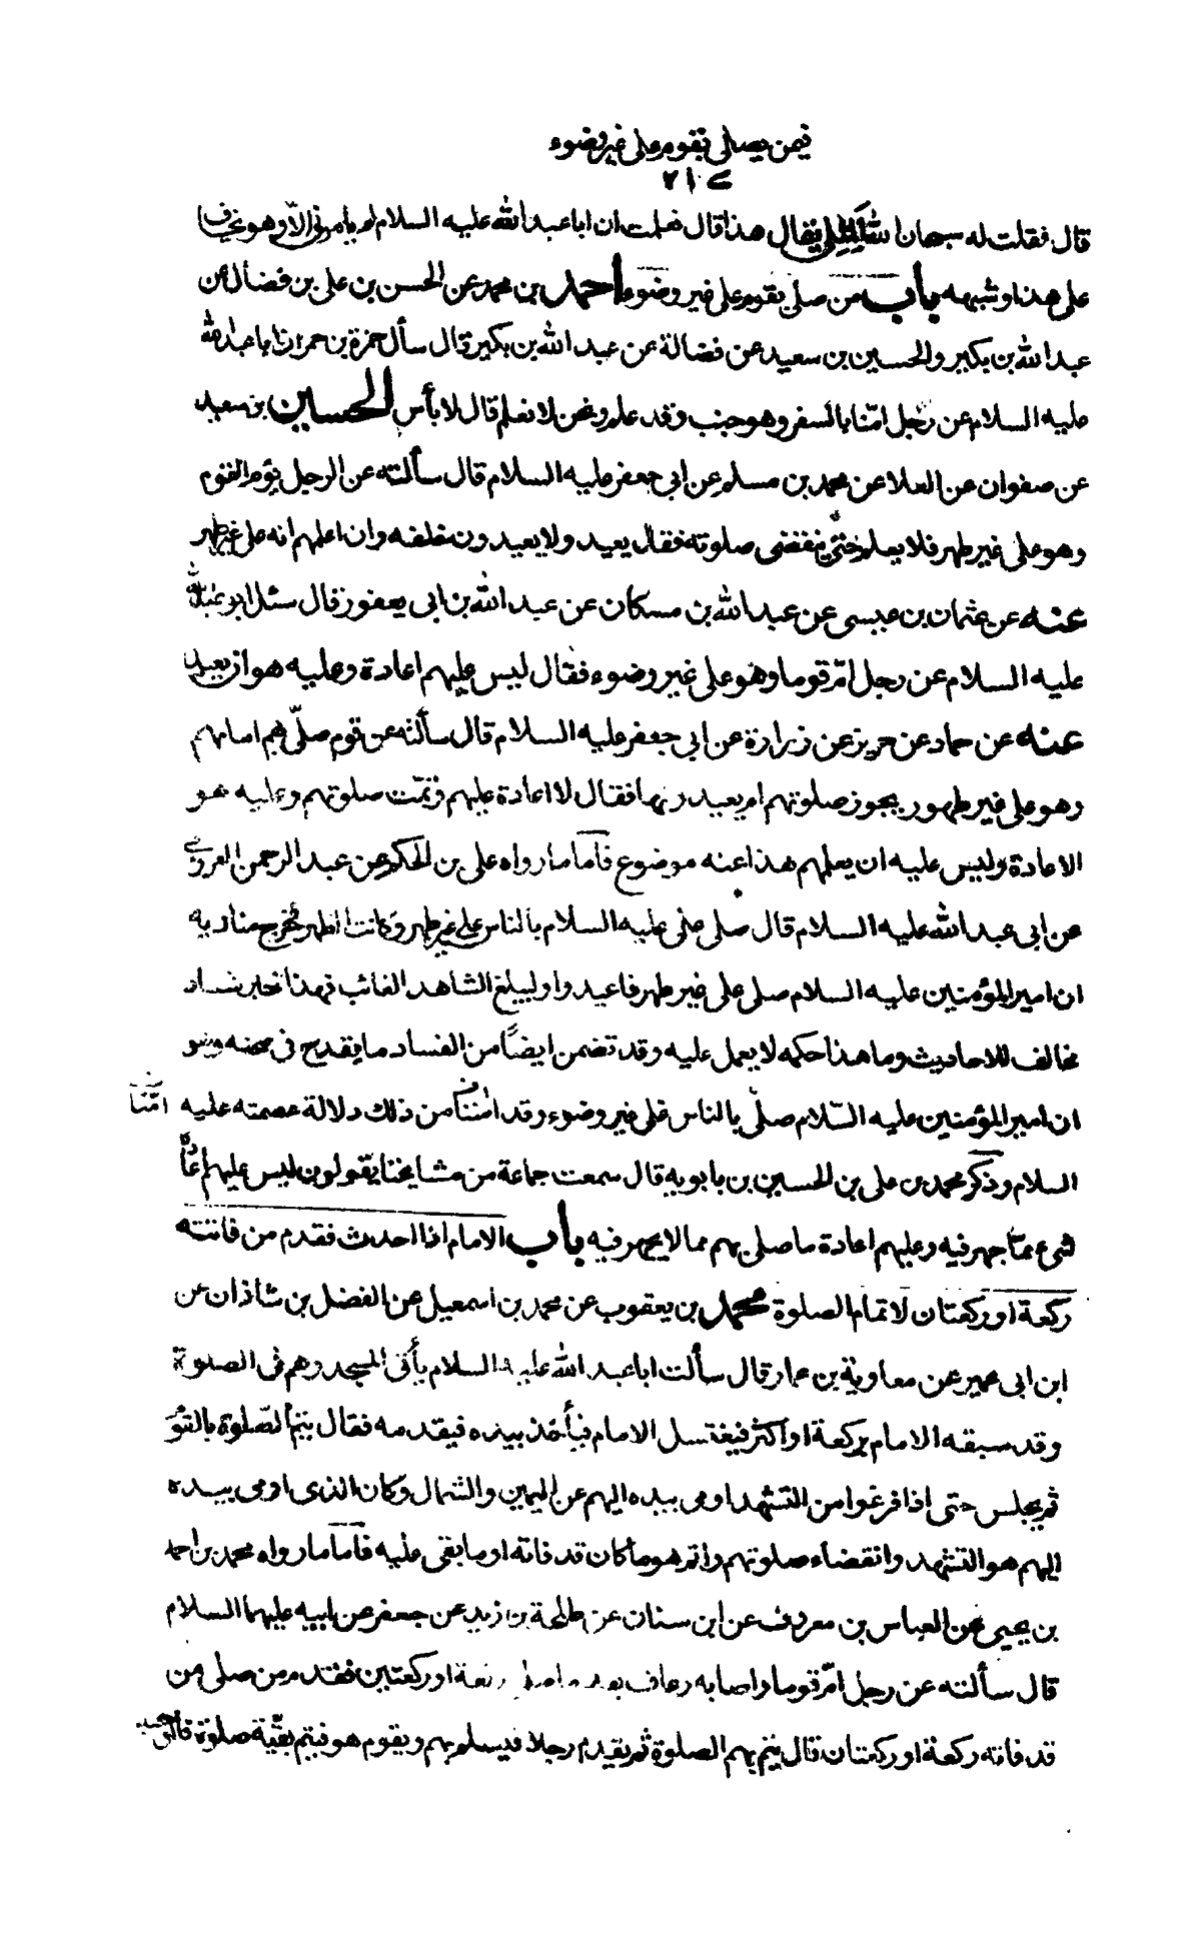 فيمن يصلى بقوم على غير وضوء
٢١٥
قال فقلت له سبحان الله يقال هذا قال فعلت ان ابا عبد الله عليه السلام لم يأمرنى الا وهو يخاف
على هذا وشبهه باب من صلى بقوم على غير وضوء احمد بن محمد عن الحسن بن على بن فضال عن
عبد الله بن بكير والحسين بن سعيد عن فضالة عن عبد الله بن بكير قال سأل حمزة بن حمران ابا عبد الله
عليه السلام عن رجل امّنا بالسفر وهو جنب وقد علم ونحن لا نعلم قال لا بأس الحسين بن سعيد
عن صفوان عن العلا عن محمد بن مسلم عن ابى جعفر عليه السلام قال سألته عن الرجل يؤم القوم
وهو على غير طهر فلا يعلم حتى تنقضى صلوته فقال يعيد ولا يعيدون من خلفه وان اعلمهم انه على غير طهر
عنه عن عثمان بن عيسى عن عبد الله بن مسكان عن عبد الله بن ابى يعفور قال سئل ابو عبد الله
عليه السلام عن رجل امّ قوما وهو على غير وضوء فقال ليس عليهم اعادة وعليه هو ان يعيد
عنه عن حماد عن حريز عن زرارة عن ابى جعفر عليه السلام قال سألته عن قوم صلّى بهم امامهم
وهو على غير طهور يجوز صلوتهم ام يعيدونها فقال لا اعادة عليهم وتمّت صلوتهم وعليه هو
الاعادة وليس عليه ان يعلمهم هذا عنه موضوع فأما ما رواه على بن الحكم عن عبد الرحمن العرزمى
عن ابى عبد الله عليه السلام قال صلى على عليه السلام بالناس على غير طهر وكانت الظهر فخرج مناديه
ان امير المؤمنين عليه السلام صلى على غير طهر فاعيدوا وليبلغ الشاهد الغائب فهذا خبر شاذ
مخالف للاحاديث وما هذا حكمه لا يعمل عليه وقد تضمن ايضًا من الفساد ما يقدح فى صحته وهو
ان امير المؤمنين عليه السّلام صلّى بالناس على غير وضوء وقد امننا من ذلك دلالة عصمته عليه
السلام وذكر محمد بن على بن الحسين بن بابويه قال سمعت جماعة من مشايخنا يقولون ليس عليهم اعادة
شىء ممّا جهر فيه وعليهم اعادة ما صلى بهم مما لا يجهر فيه باب الامام اذا احدث فقدم من فاتته
ركعة او ركعتان لاتمام الصلوة محمد بن يعقوب عن محمد بن اسمعيل عن الفضل بن شاذان عن
ابن ابى عمير عن معاوية بن عمار قال سألت ابا عبد الله عليه السلام يأتى المسجد وهم فى الصلوة
وقد سبقه الامام بركعة او اكثر فيغتسل الامام فيأخذ بيده فيقدمه فقال يتم الصلوة بالقوم
ثم يجلس حتى اذا فرغوا من التشهد اومى بيده اليهم عن اليمين والشمال وكان الذى اومى بيده
اليهم هو التشهد وانقضاء صلوتهم واتم هو ما كان قد فاته او ما بقى عليه فأما ما رواه محمد بن احمد
بن يحيى عن العباس بن معروف عن ابن سنان عن طلحة بن زيد عن جعفر عن ابيه عليهما السلام
قال سألته عن رجل امّ قوما واصابه رعاف بعد ما صلى ركعة او ركعتين فقدم من صلى من
قد فاته ركعة او ركعتان قال يتم بهم الصلوة ثم يقدم رجلا فيسلم بهم ويقوم هو فيتم بقيّة صلوته